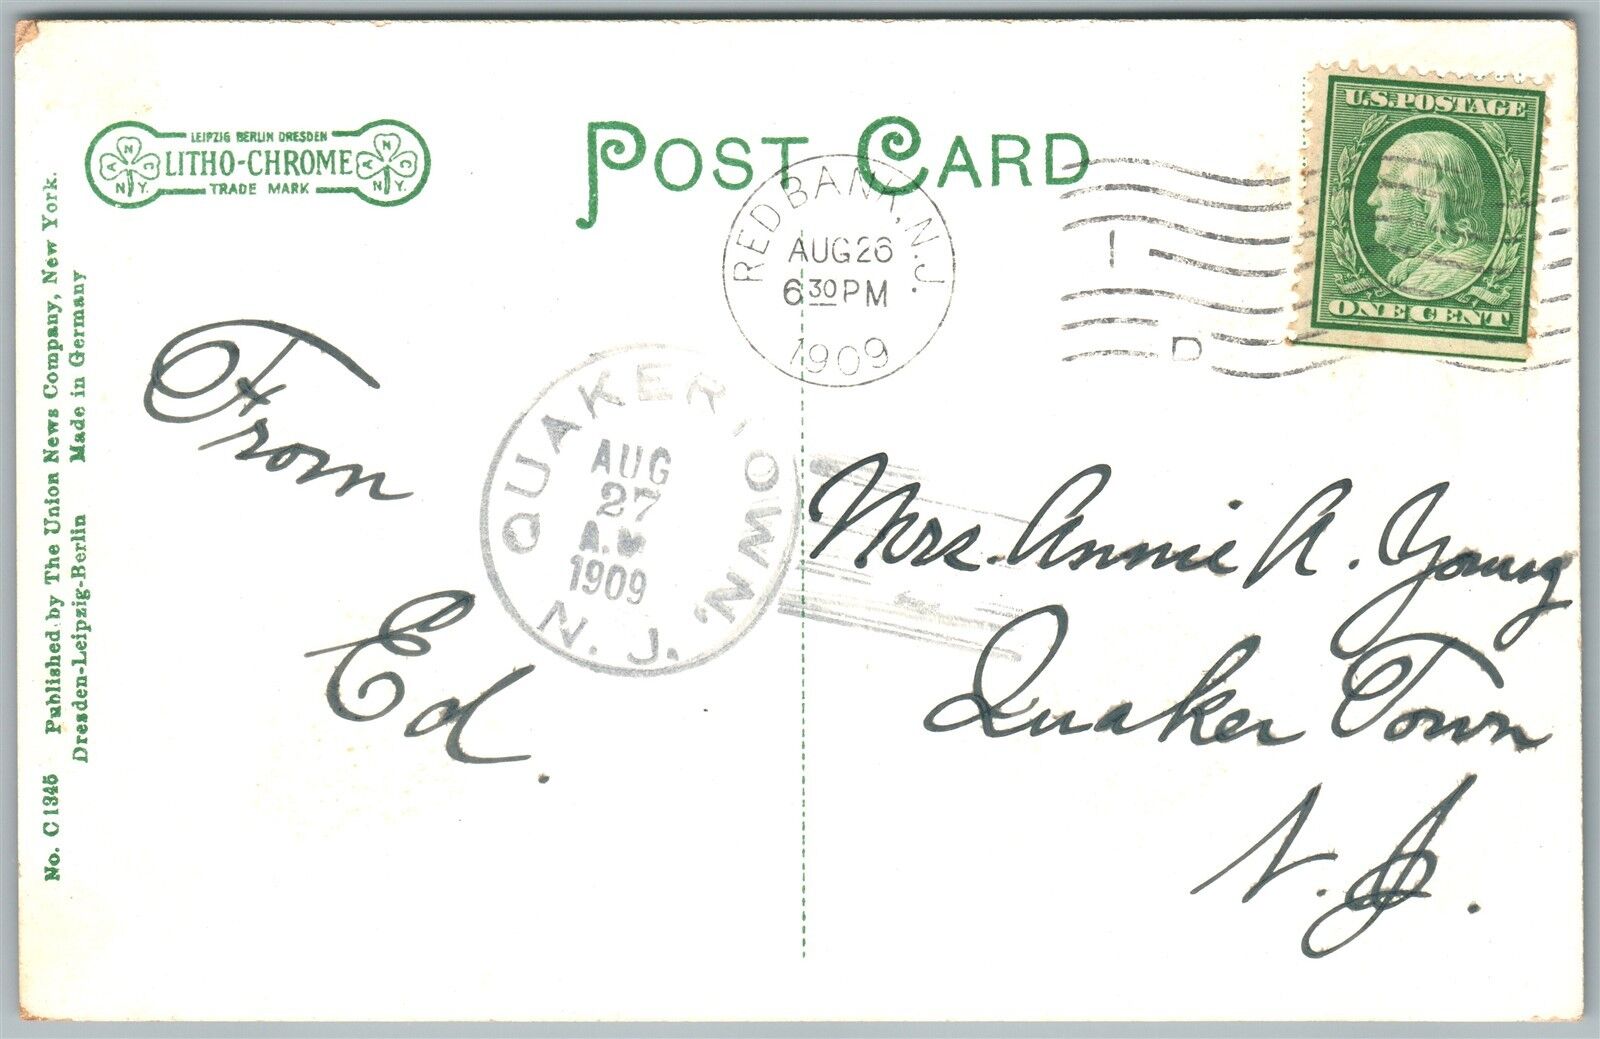 LEIPZIG BERLIN DRESDEN
LITHO-CHROME
TRADE MARK
A N C
N.Y.
A N C
N.Y.
POST CARD
U.S. POSTAGE
ONE CENT
RED BANK, N.J.
AUG 26
6 30 PM
1909
1
D
QUAKERTOWN, N.J.
AUG
27
A.M
1909
From
Ed.
Mrs. Annie A. Young
Quaker Town
N. J.
No. C1345 Published by The Union News Company, New York.
Dresden-Leipzig-Berlin Made in Germany